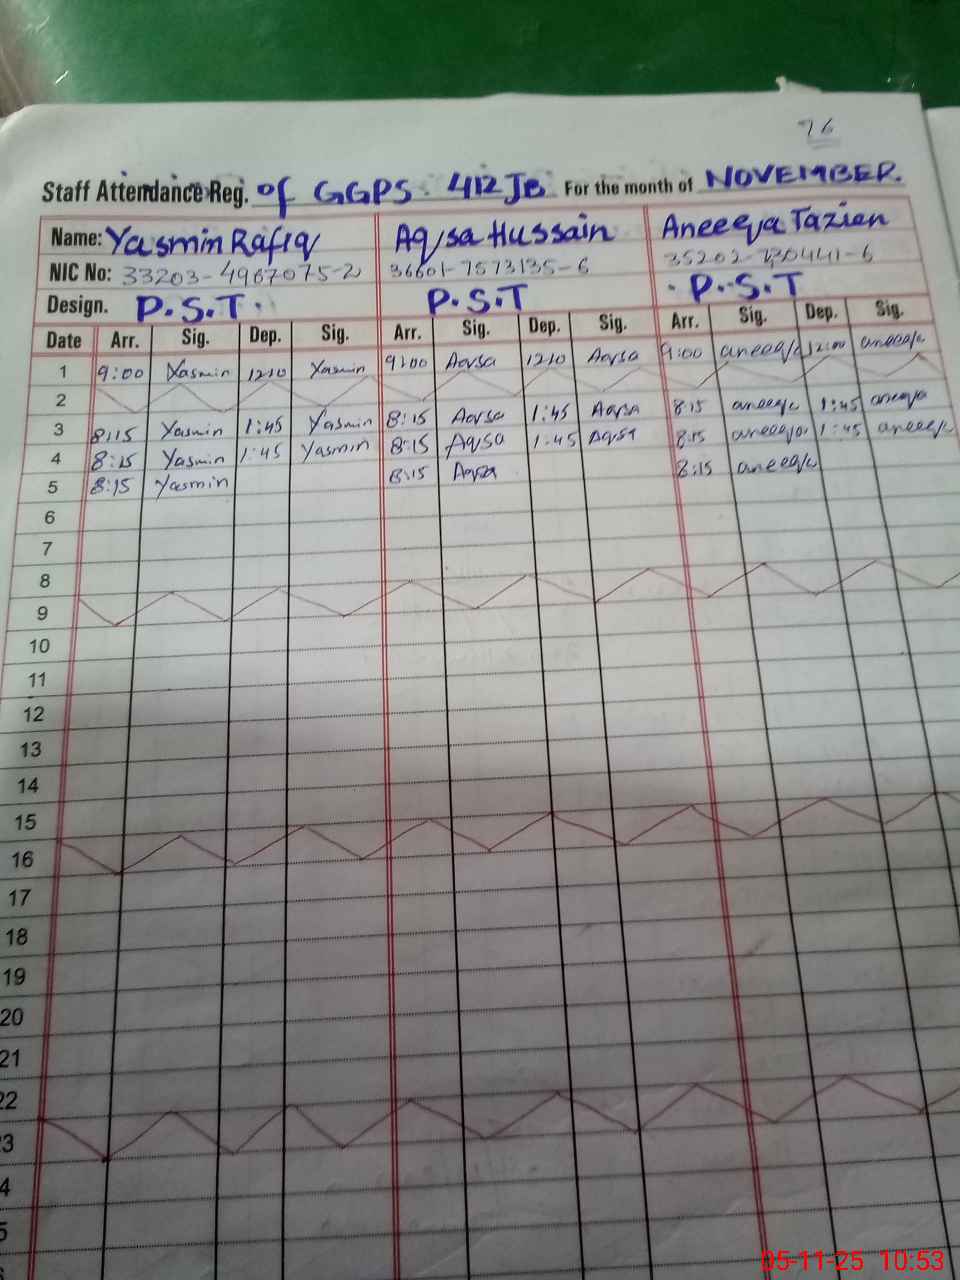 76
Staff Attendance Reg. of GGPS 412 JB For the month of NOVEMBER.
Name: Yasmin Rafiq Aqsa Hussain Aneeqa Tazien
NIC No: 33203-4967075-2 36601-7573135-6 35202-730441-6
Design. P.S.T. P.S.T P.S.T
Date Arr. Sig. Dep. Sig. Arr. Sig. Dep. Sig. Arr. Sig. Dep. Sig.
1 9:00 Yasmin 1210 Yasmin 9:00 Aqsa 1210 Aqsa 9:00 aneeqa 12:00 aneeqa
2
3 8:15 Yasmin 1:45 Yasmin 8:15 Aqsa 1:45 Aqsa 8:15 aneeqa 1:45 aneeqa
4 8:15 Yasmin 1:45 Yasmin 8:15 Aqsa 1:45 Aqsa 8:15 aneeqa 1:45 aneeqa
5 8:15 Yasmin 8:15 Aqsa 8:15 aneeqa
6
7
8
9
10
11
12
13
14
15
16
17
18
19
20
21
22
23
4
5
05-11-25 10:53